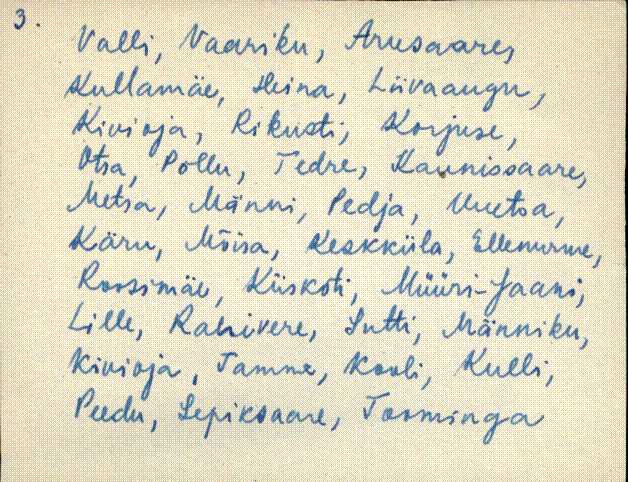 3.
Valli, Vaariku, Arusaare,
Kullamäe, Heina, Liivaaugu,
Kivioja, Rikusti, Korjuse,
Otsa, Põllu, Tedre, Kaunissaare,
Metsa, Männi, Pedja, Uuetoa,
Käru, Mõisa, Keskküla, Ellenurme,
Roosimäe, Kiiskoti, Müüri-Jaani,
Lille, Rahivere, Sutti, Männiku,
Kivioja, Tamme, Kooli, Kulli,
Peedu, Lepiksaare, Toominga